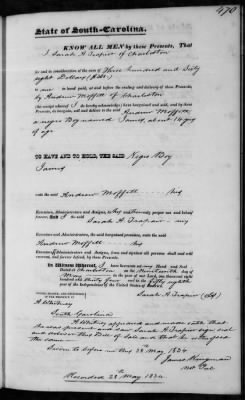 470
State of South-Carolina.
KNOW ALL MEN by these Presents, That
I Sarah A Trapier of Charleston
for and in consideration of the sum of Three hundred and Sixty
eight Dollars
to me in hand paid, at and before the sealing and delivery of these Presents,
by Andrew Moffett of Charleston
the receipt whereof I do hereby acknowledge) have bargained and sold, and by these
Presents, do bargain, sell and deliver to the said Andrew Moffett
a negro Boy named James, about 14 years
of age
TO HAVE AND TO HOLD, THE SAID Negro Boy
James
unto the said Andrew Moffett his
Executors, Administrators and Assigns, to his and their only proper use and behoof
forever. And I the said Sarah A Trapier my
Executors and Administrators, the said bargained premises, unto the said
Andrew Moffett his
Executors, Administrators and Assigns, from and against all persons shall and will
warrant, and forever defend, by these Presents.
In Witness Whereof, I have hereunto set my Hand and Seal
Dated at Charleston on the Nineteenth day of
May in the year of our Lord, one thousand eight
hundred and thirty four and in the fifty eighth
year of the Independence of the United States of America.
Sarah A Trapier (LS)
SIGNED, SEALED, AND DELIVERED
IN THE PRESENCE OF
A Whitney
South Carolina
A Whitney appeared and made oath that
he was present and saw Sarah A Trapier sign seal
and deliver this Bill of Sale and that he witnessed
the same
Sworn to before me this 28th May 1834
James Kingman
Not Pub
Recorded 28th May 1834